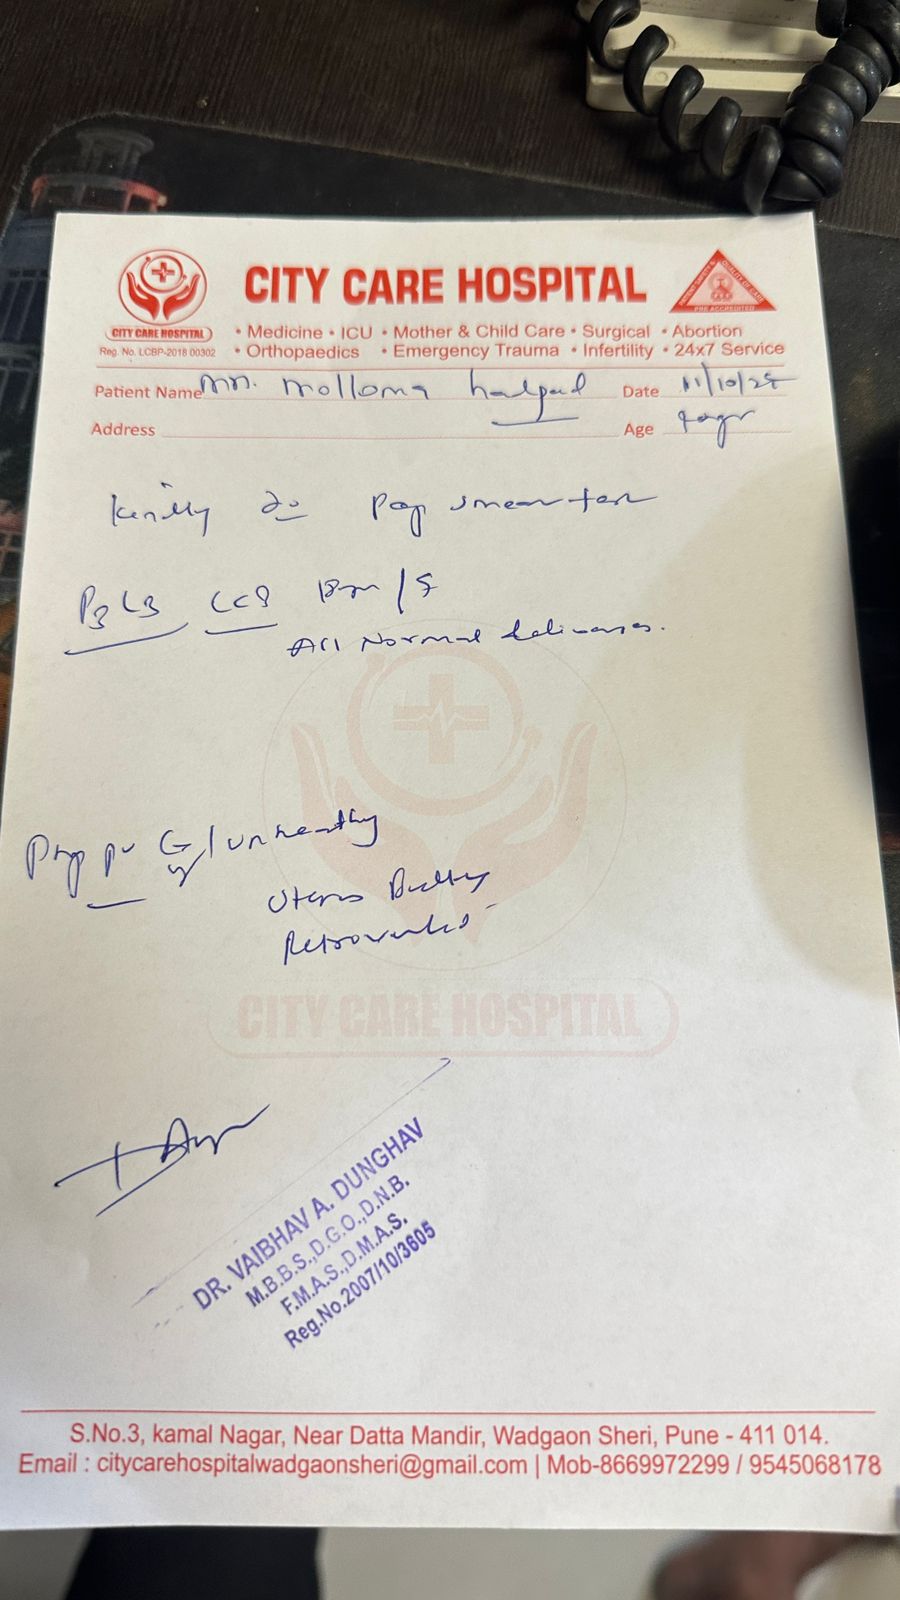 CITY CARE HOSPITAL
CITY CARE HOSPITAL
Reg. No. LCBP-2018 00302
• Medicine • ICU • Mother & Child Care • Surgical • Abortion
• Orthopaedics • Emergency Trauma • Infertility • 24x7 Service
PRE ACCREDITED
Patient Name Date 11/10/25
Address Age
Kindly do Pap smear test
P3L3 LCB 18yr / F
All Normal deliveries.
unhealthy
Uterus Bulky
Retroverted
CITY CARE HOSPITAL
DR. VAIBHAV A. DUNGHAV
M.B.B.S.,D.G.O.,D.N.B.
F.M.A.S.,D.M.A.S.
Reg.No.2007/10/3605
S.No.3, kamal Nagar, Near Datta Mandir, Wadgaon Sheri, Pune - 411 014.
Email : citycarehospitalwadgaonsheri@gmail.com | Mob-8669972299 / 9545068178